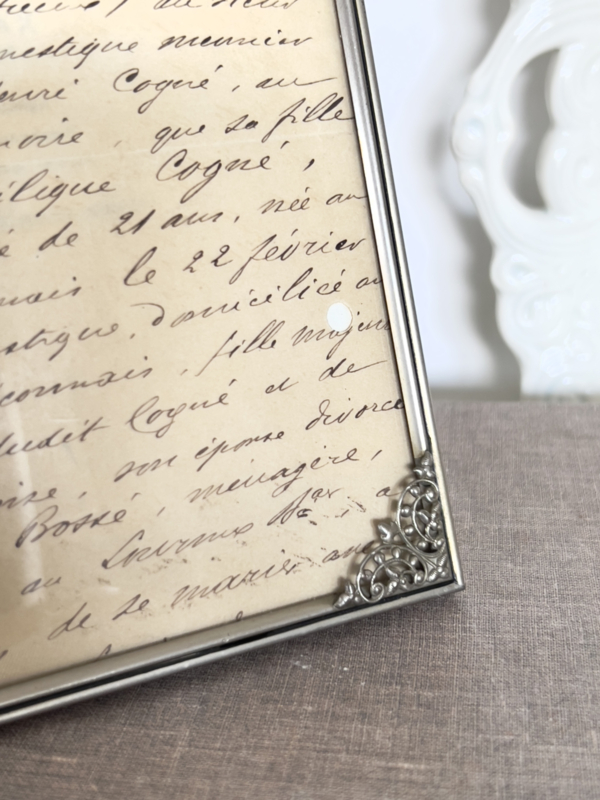 au sieur
mestique meunier
Cogné, au
que sa fille
Cogné,
é de 21 ans, née au
mais le 22 février
stique, domicilié au
connais, fille majeur
dudit Cogné et de
oise, son épouse divorcé
Bossé, ménagère,
au Louroux
de se marier avec